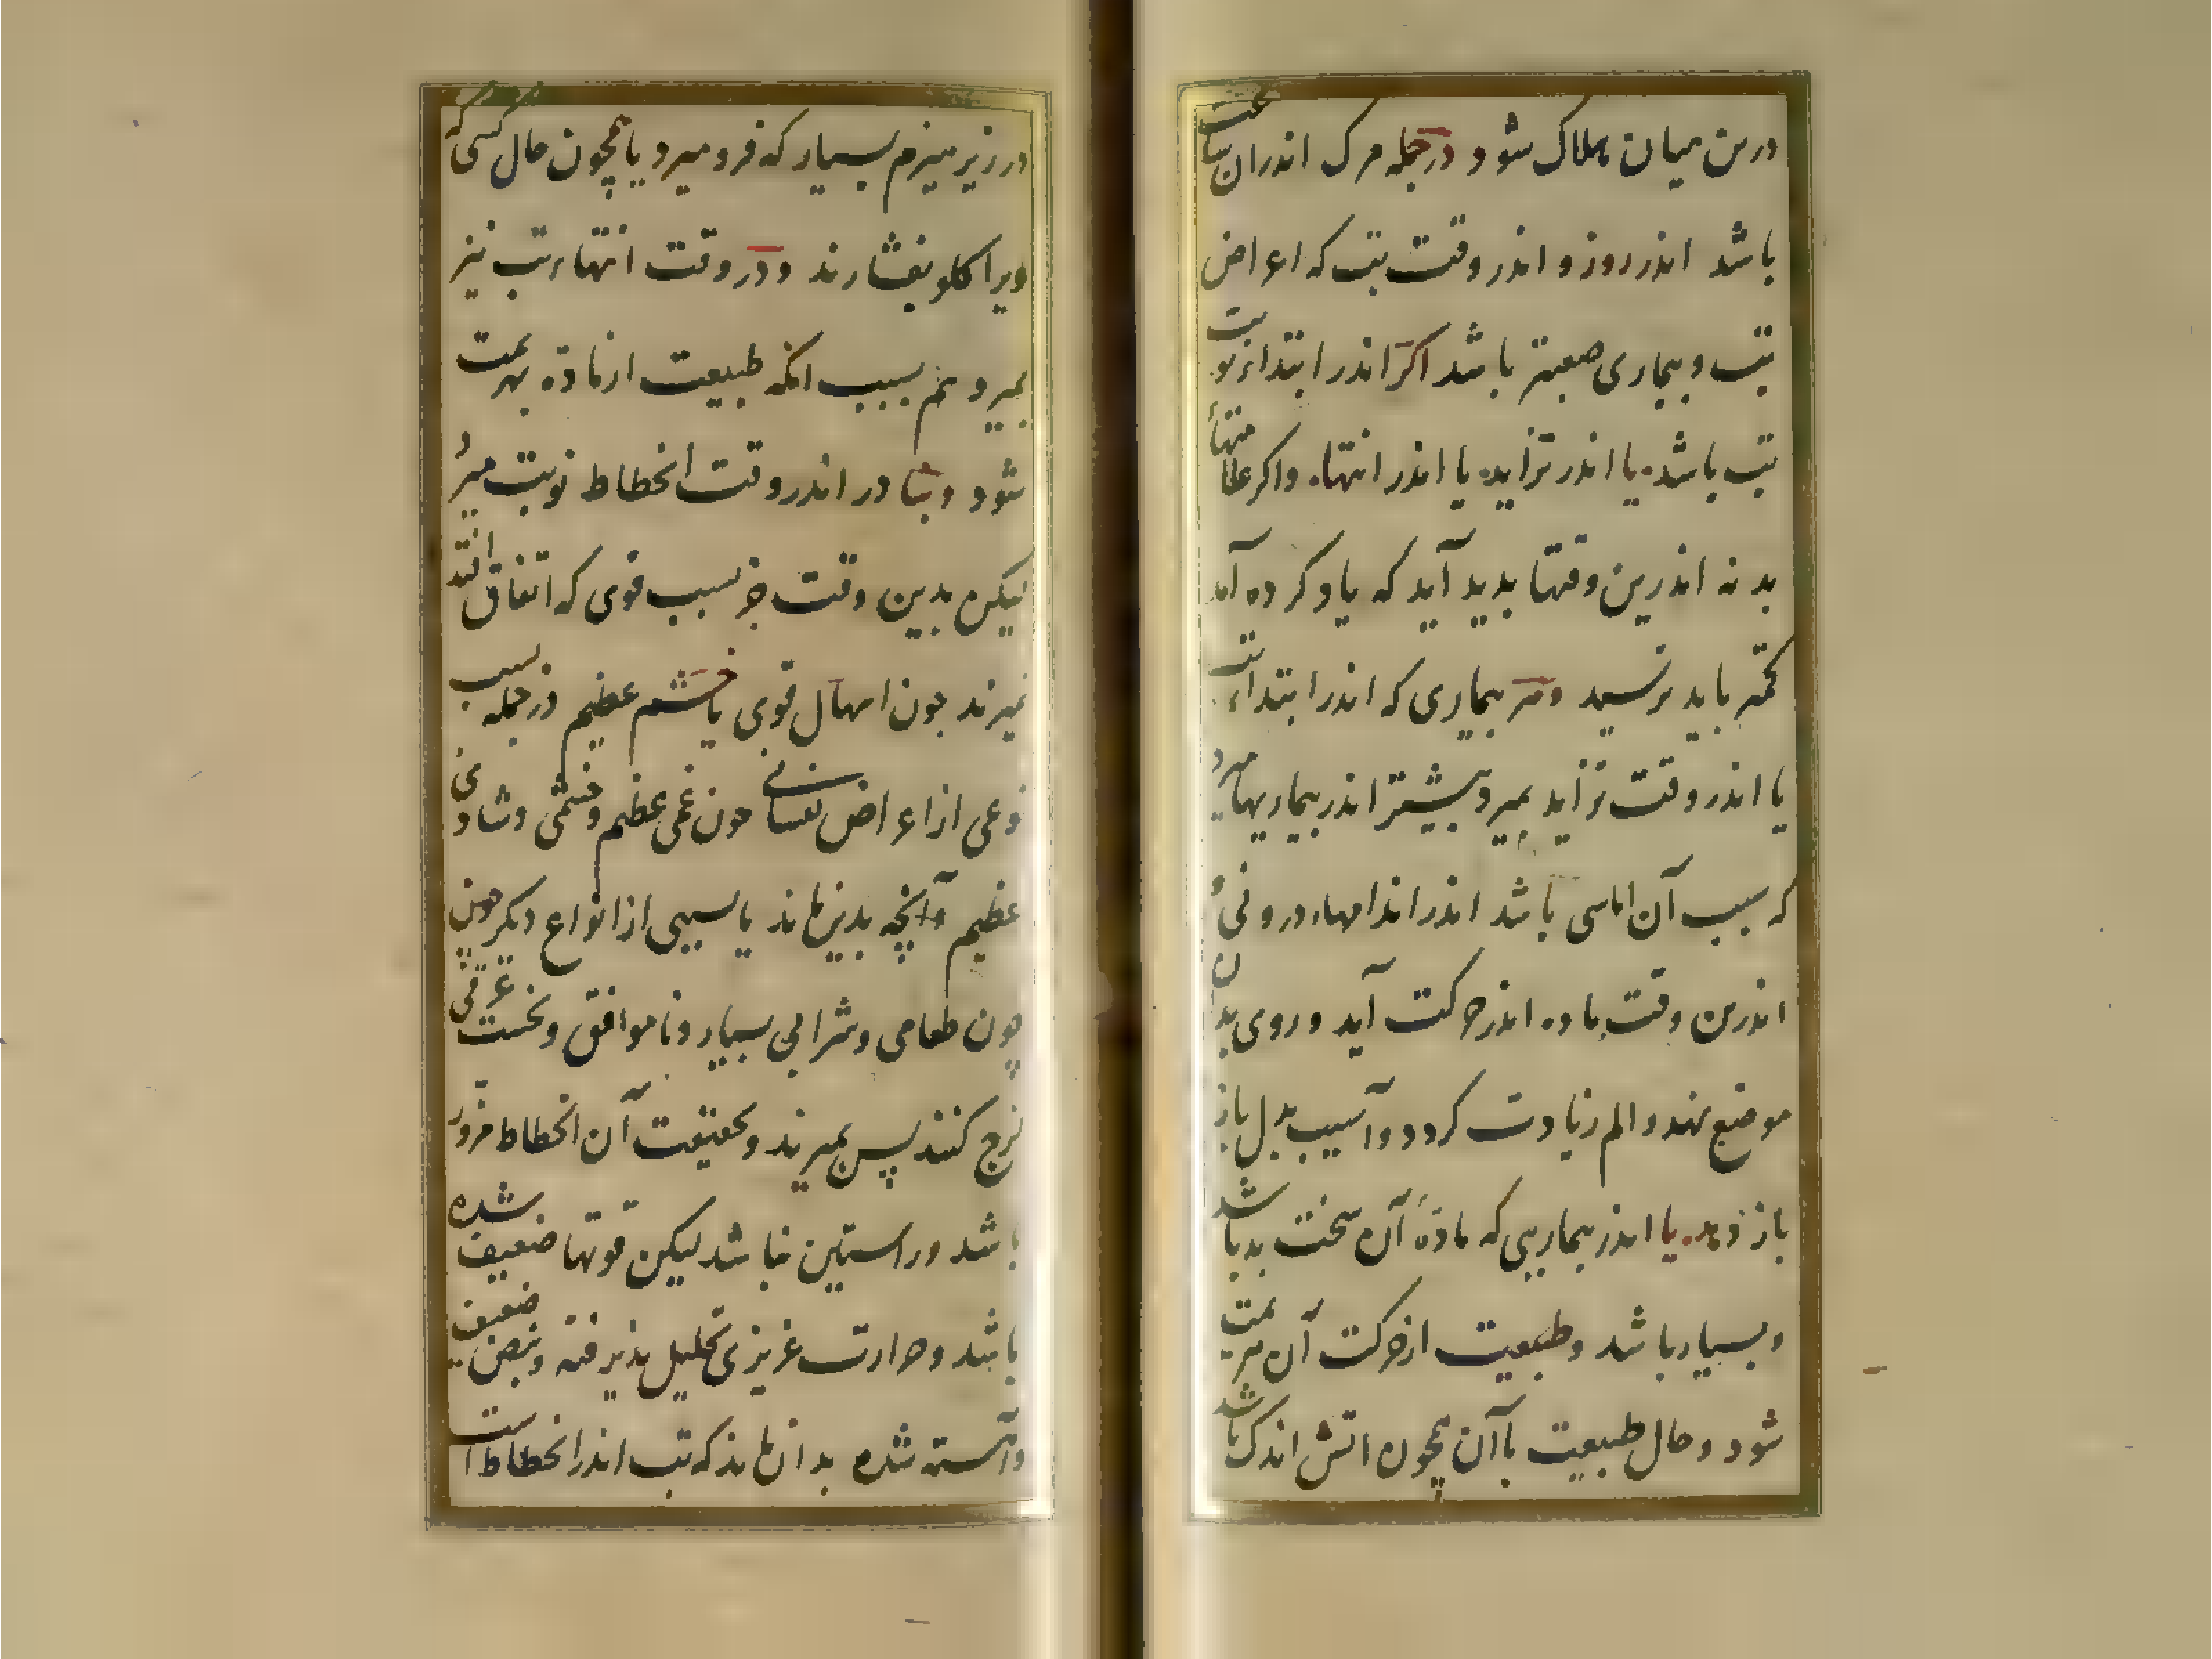 درین میان هلاک شود درجمله مرک اندران ساعت
باشد اندر روز و اندر وقت تب که اعراض
تب و بیماری صعبتر باشد اکر اندر ابتداء نوبت
تب باشد یا اندر تزاید یا اندر انتهاء واکر علامتهاء
بد نه اندرین وقتها بدید آید که یاد کرده آمد
کمتر باید ترسید وهر بیماری که اندر ابتداء تب
یا اندر وقت تزاید بمیرد بیشتر اندر بیماریها میرد
که سبب آن اماسی باشد اندر اندامهاء درونی و
اندرین وقت ماده اندر حرکت آید و روی بدان
موضع نهد و الم زیادت کردد وآسیب بدل باز
باز دهد یا اندر بیماریی که مادۀ آن سخت بد باشد
وبسیار باشد وطبیعت از حرکت آن هزیمت
شود و حال طبیعت با آن همچون اتش اندک باشد
در زیر هیزم بسیار که فرو میرد یا همچون حال کسی که
ویرا کلو بفشارند ودر وقت انتهاء تب نیز
بمیرد هم بسبب انکه طبیعت از ماده بهزیمت
شود وبنادر اندر وقت انحطاط نوبت میرد
لیکن بدین وقت جز بسبب قوی که اتفاق افتد
نمیرند جون اسهال قوی یا خشم عظیم درجمله بسبب
نوعی از اعراض نفسانی جون غمی عظیم وخشمی وشادیی
عظیم وآنچه بدین ماند یا بسببی از انواع دیکر جون
چون طعامی وشرابی بسیار ونا موافق ونخست عرقی
لزج کنند پس بمیرند وبحقیقت آن انحطاط مزور
باشد وراستین نباشد لیکن قوتها ضعیف شده
باشد وحرارت غریزی تحلیل پذیرفته ونبض ضعیف
وآهسته شده بدان ماند که تب اندر انحطاط است